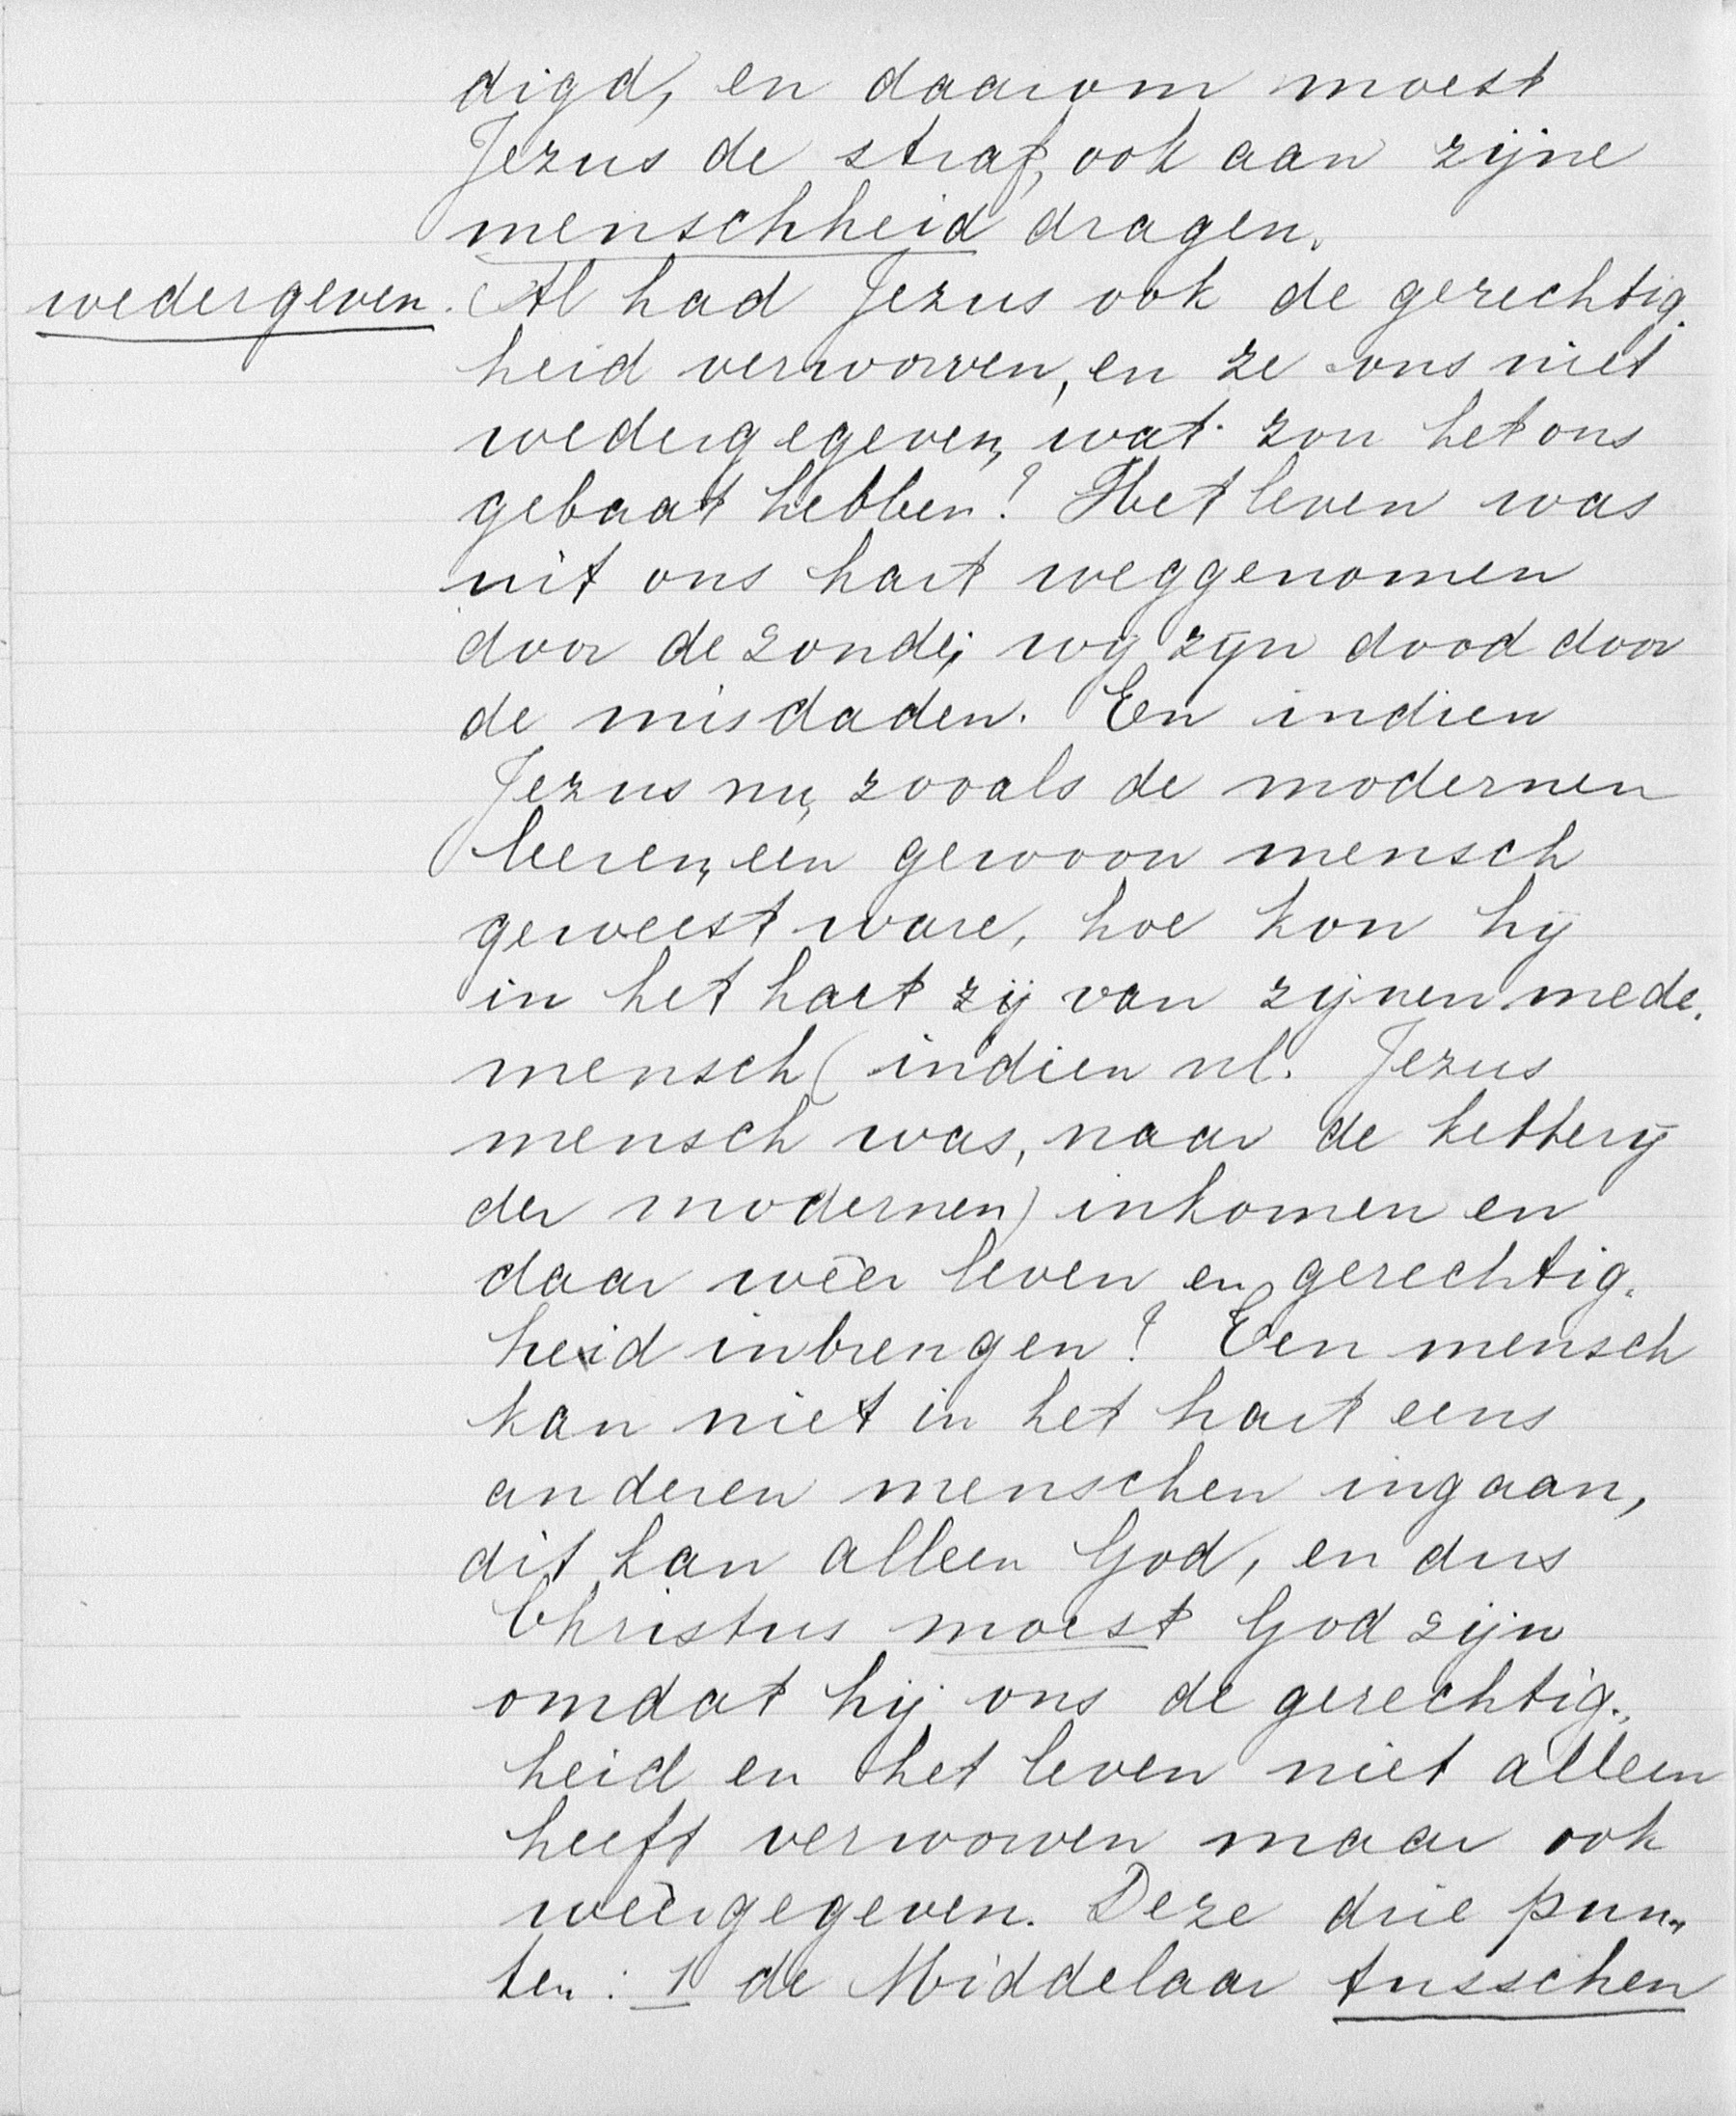 digd, en daarom moest
Jezus de straf, ook aan zijne
menschheid dragen.
wedergeven. Al had Jezus ook de gerechtig-
heid verworven, en ze ons niet
wedergegeven, wat zou het ons
gebaat hebben? Het leven was
uit ons hart weggenomen
door de zonde; wij zijn dood door
de misdaden. En indien
Jezus nu, zooals de modernen
leeren, een gewoon mensch
geweest ware, hoe kon hij
in het hart zij van zijnen mede-
mensch (indien nl. Jezus
mensch was, naar de ketterij
der modernen) inkomen en
daar wêer leven en gerechtig-
heid inbrengen? Een mensch
kan niet in het hart eens
anderen menschen ingaan,
dit kan alleen God, en dus
Christus moest God zijn
omdat hij ons de gerechtig-
heid en het leven niet alleen
heeft verworven maar ook
wêergegeven. Deze drie pun-
ten: 1 de Middelaar tusschen